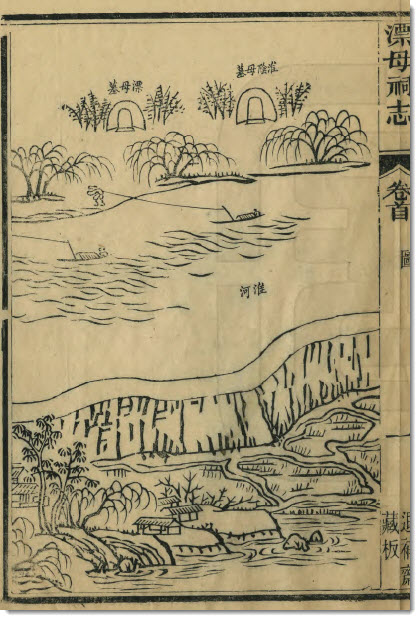 漂母祠志
卷首
圖
一
退補齋
藏板
淮陰母墓
漂母墓
淮河